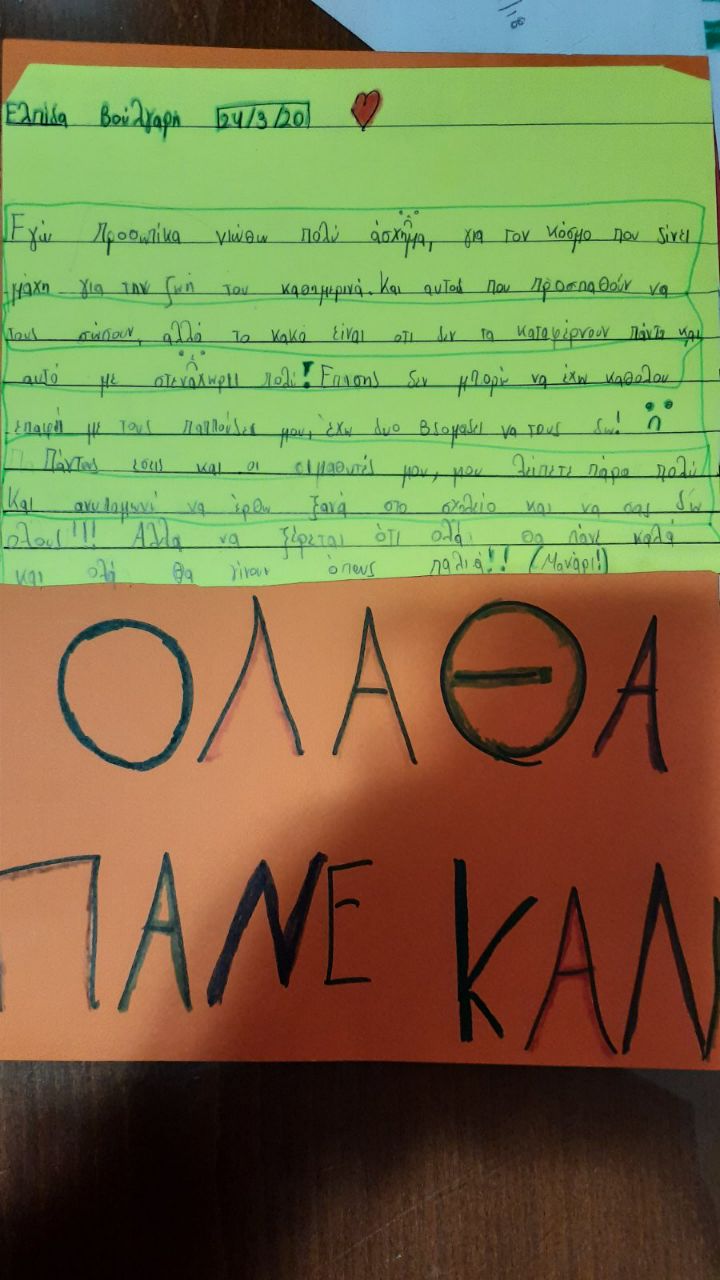 Ελπίδα Βούλγαρη 24/3/20
Εγώ προσωπικά νιώθω πολύ άσχημα, για τον κόσμο που δίνει
μάχη για την ζωή του καθημερινά. Και αυτού που προσπαθούν να
τους σώσουν, αλλά το κακό είναι οτι δεν τα καταφέρνουν πάντα και
αυτό με στεναχωρεί πολύ! Επισης δεν μπορώ να έχω καθολου
επαφή με τους παππούδες μου, έχω δυο βδομαδες να τους δω!
Πάντως εσεις και οι σιμαθητές μου, μου λείπετε πάρα πολύ
Και ανυπομωνώ να έρθω ξανά στο σχολείο και να σας δω
ολους!!! Αλλα να ξέρεται ότι ολα θα πάνε καλά
και ολα θα γίνουν όπως παλιά!! (Μακάρι!)
ΟΛΑ ΘΑ
ΠΑΝΕ ΚΑΛ